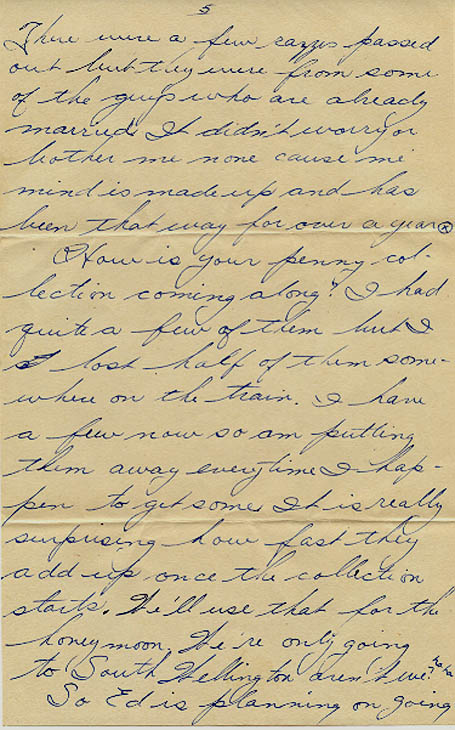 5
There were a few razzes passed
out but they were from some
of the guys who are already
married. It didn't worry or
bother me none cause me
mind is made up and has
been that way for over a year
How is your penny col-
lection coming along? I had
quite a few of them but I
lost half of them some-
where on the train. I have
a few now so am putting
them away everytime I hap-
pen to get some. It is really
surprising how fast they
add up once the collection
starts. We'll use that for the
honeymoon. We're only going
to South Wellington aren't we? ha ha
So Ed is planning on going